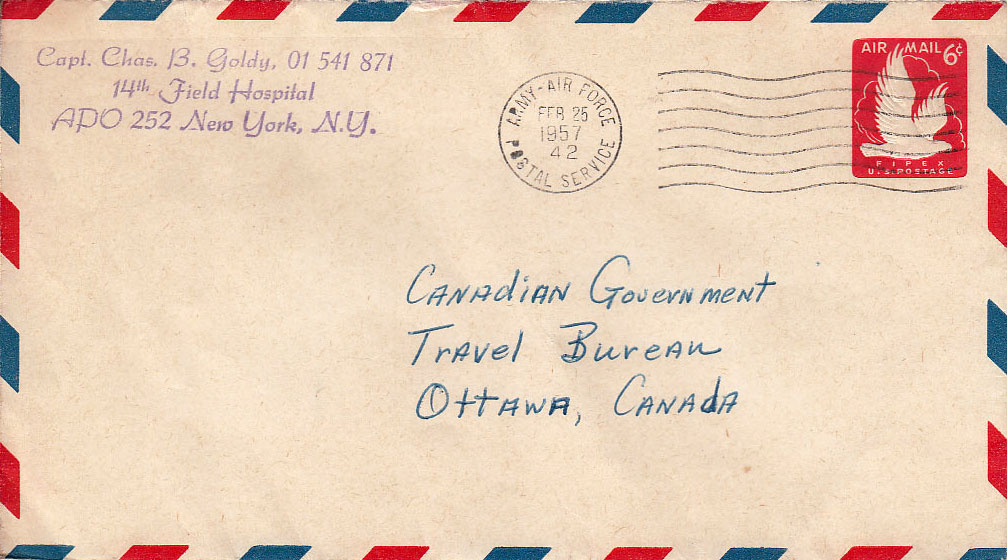 Capt. Chas. B. Goldy, 01 541 871
14th Field Hospital
APO 252 New York, N.Y.
ARMY-AIR FORCE
POSTAL SERVICE
FEB 25
1957
42
AIR MAIL 6¢
FIPEX
U.S. POSTAGE
Canadian Government
Travel Bureau
Ottawa, Canada